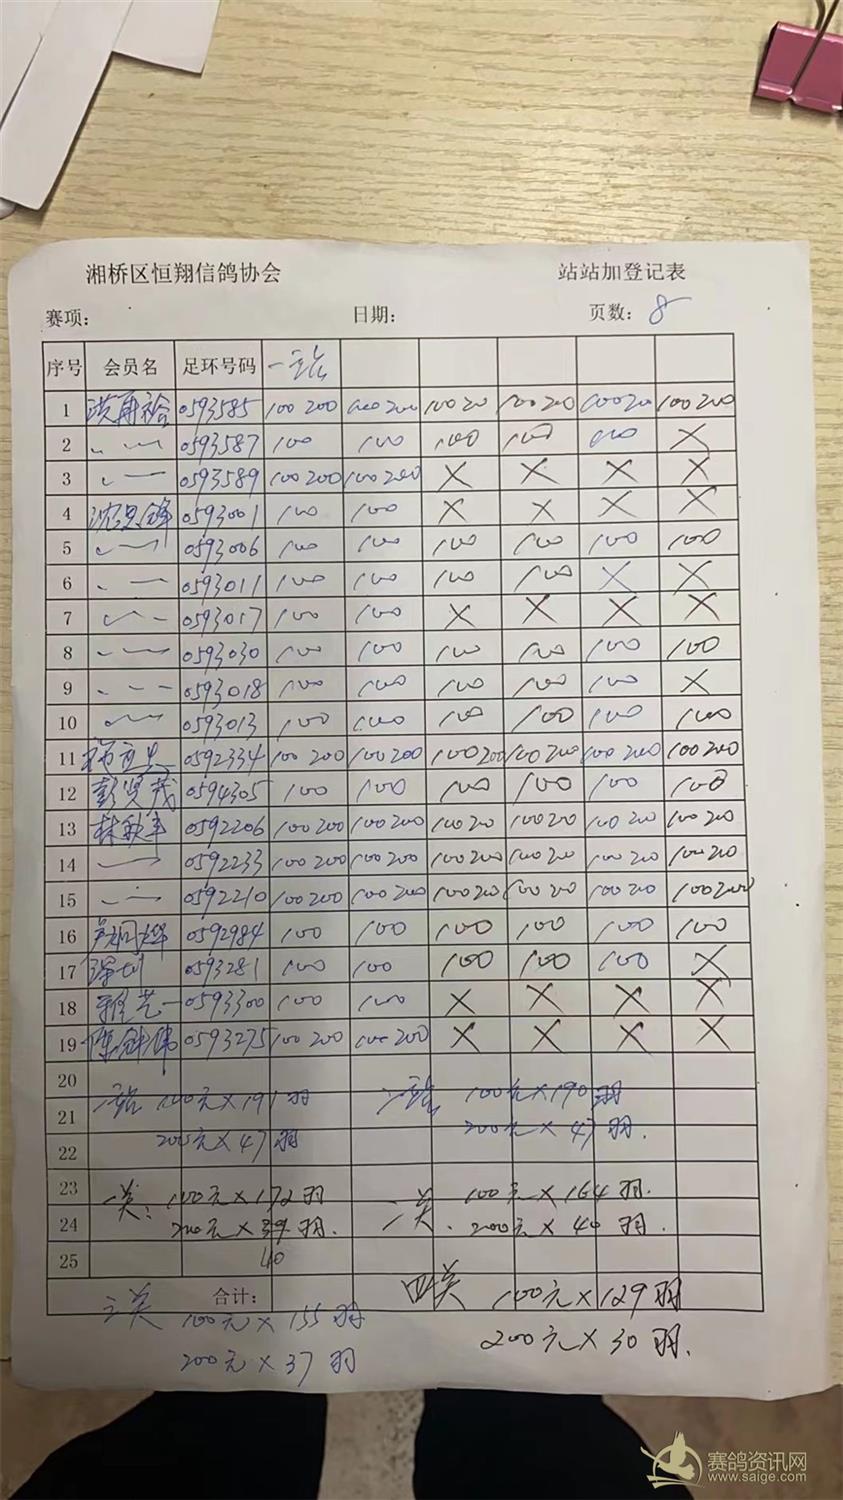 湘桥区恒翔信鸽协会 站站加登记表
赛项： 日期： 页数：8
序号 会员名 足环号码 一站
1 洪再裕 0593585 100 200 100 200 100 200 100 200 100 200 100 200
2 0593587 100 100 100 100 100 X
3 0593589 100 200 100 200 X X X X
4 0593001 100 100 X X X X
5 0593006 100 100 100 100 100 100
6 0593011 100 100 100 100 X X
7 0593017 100 100 X X X X
8 0593030 100 100 100 100 100 100
9 0593018 100 100 100 100 100 X
10 0593013 100 100 100 100 100 100
11 0592334 100 200 100 200 100 200 100 200 100 200 100 200
12 彭贤茂 0594305 100 100 100 100 100 100
13 0592206 100 200 100 200 100 200 100 200 100 200 100 200
14 0592233 100 200 100 200 100 200 100 200 100 200 100 200
15 0592210 100 200 100 200 100 200 100 200 100 200 100 200
16 0592984 100 100 100 100 100 100
17 0593281 100 100 100 100 100 X
18 0593300 100 100 X X X X
19 0593275 100 200 100 200 X X X X
20
21 一站 100元×191羽 二站 100元×190羽
22 200元×47羽 200元×47羽.
23 一关: 100元×172羽 二关. 100元×164羽.
24 200元×39羽. 200元×40羽.
25 40
合计：
三关 100元×155羽 四关 100元×129羽
200元×37羽 200元×30羽.
赛鸽资讯网
www.saige.com